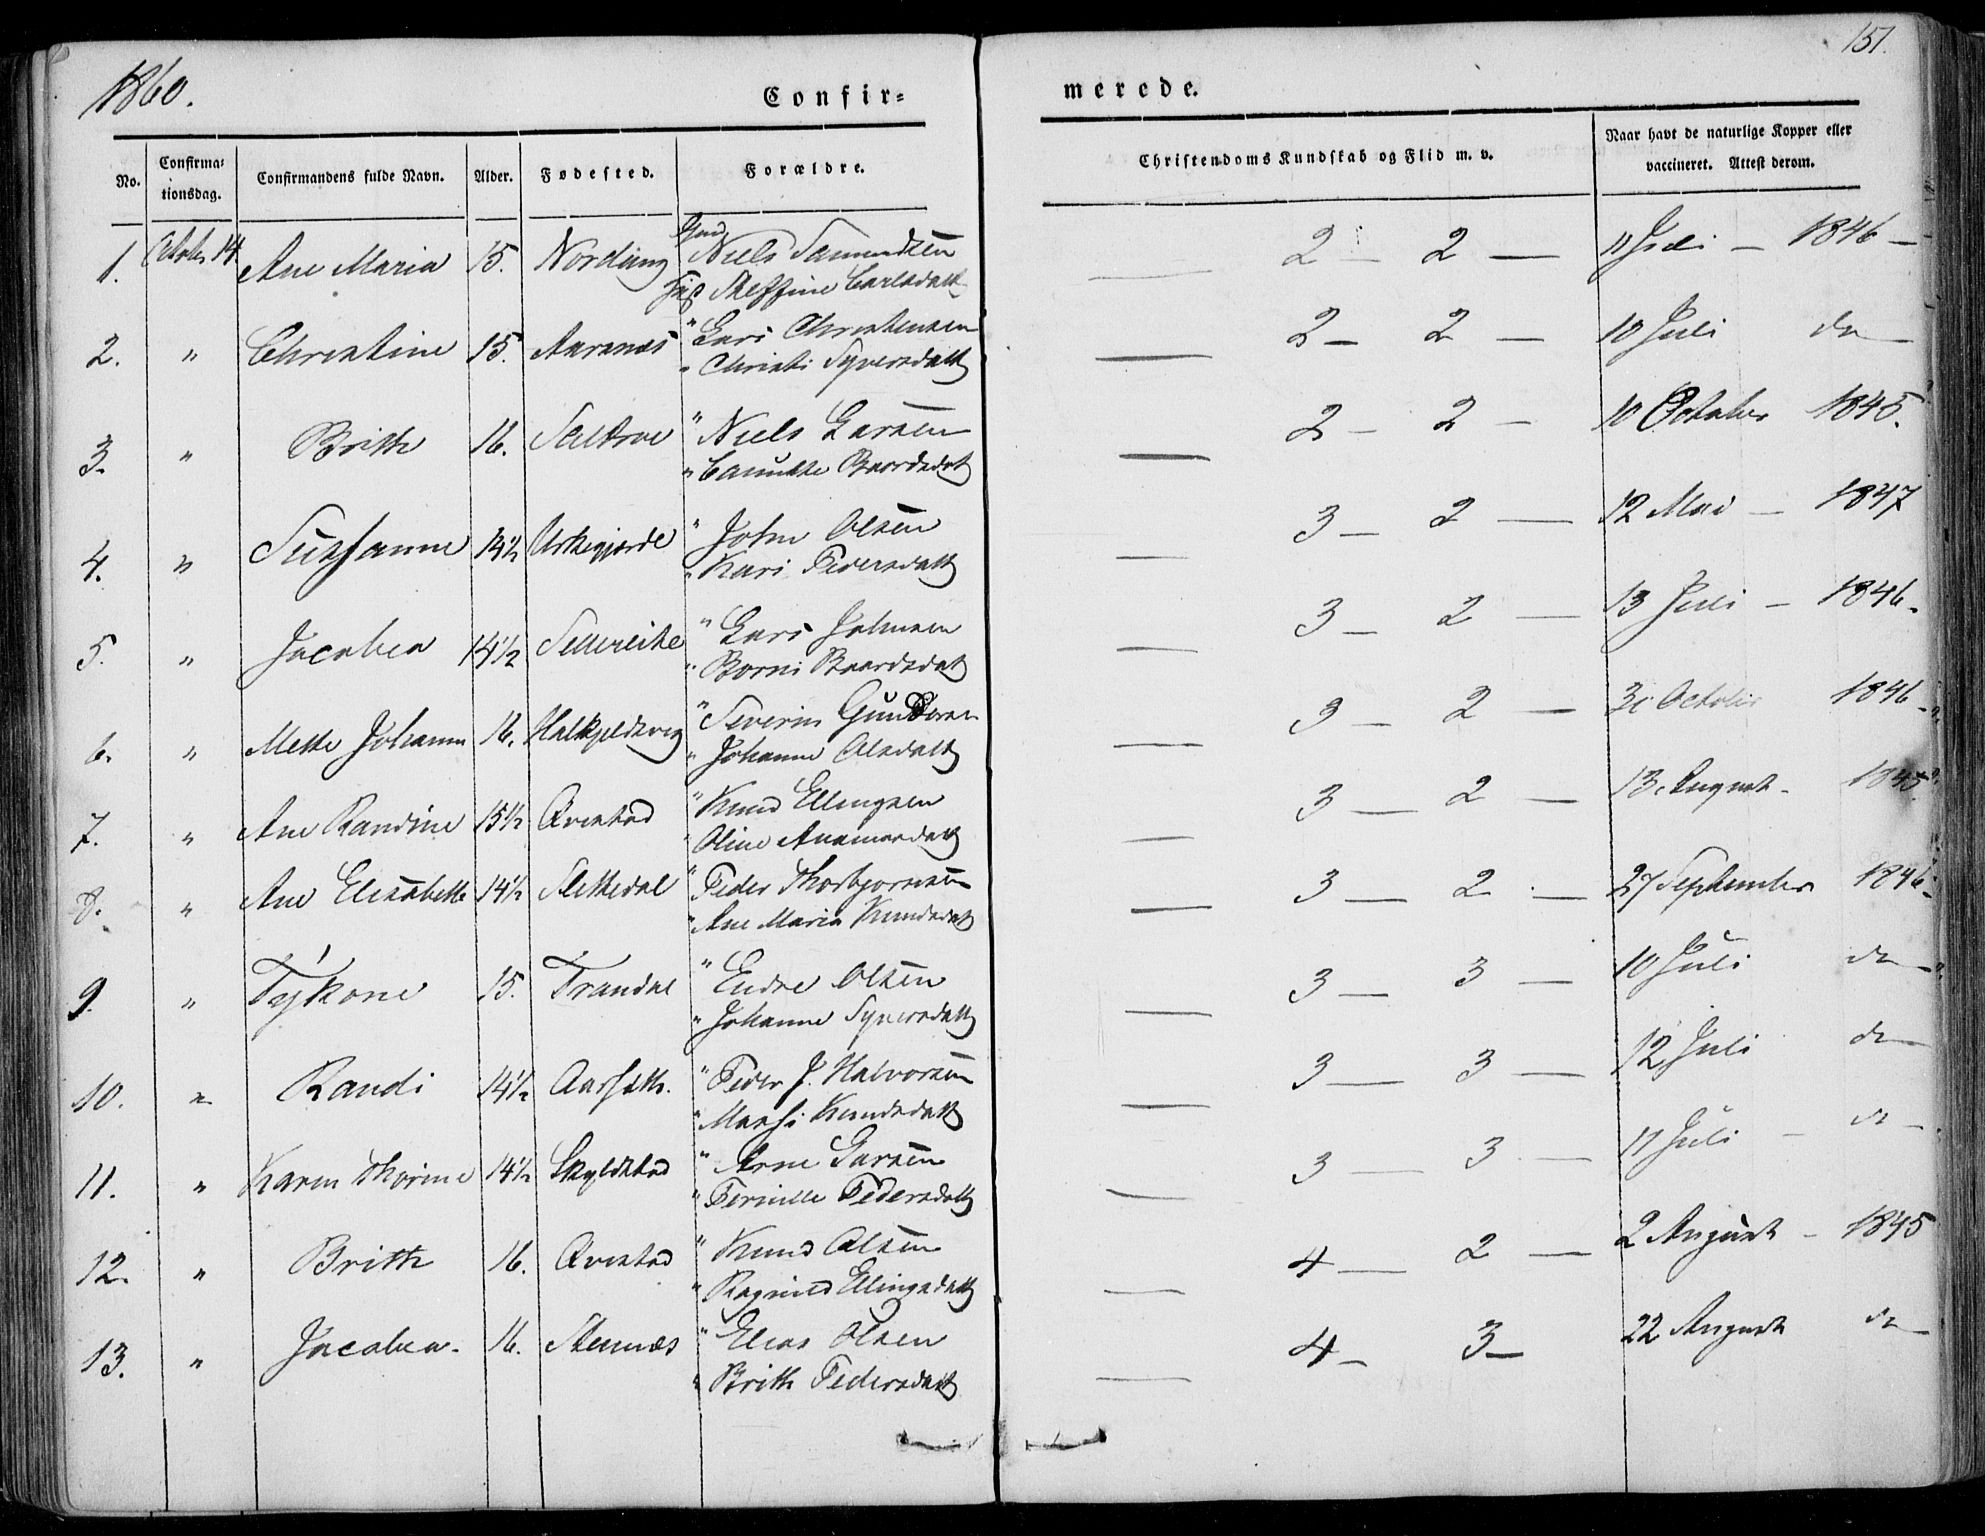 1860.
151.
Confir= merede.
No. Confirma= tionsdag. Confirmandens fulde Navn. Alder. Fødested. Forældre. Christendoms Kundskab og Flid m. v. Naar havt de naturlige Kopper eller vaccineret. Attest derom.
1. Octobr 14 Ane Maria 15. Nordang Gmd Niels Samundsen — 2 — 2 — 11 Juli — 1846 —
Steffine Carlsdatt
2. " Christine 15. Aarsnæs " Lars Christensen — 2 — 2 — 10 Juli do —
" Christi Syversdatt
3. " Brithe 16. " Niels Larsen — 2 — 2 — 10 October 1845.
" Baardsdt
4. " Sussanne 14½ Urkegjerde " John Olsen — 3 — 2 — 12 Mai — 1847
" Kari Pedersdatt
5. " Jacobea 14½ " Lars Johnsen — 3 — 2 — 13 Juli — 1846.
" Borni Baardsdat
6. " Mette Johanne 16. " Severin — 3 — 2 — October 1846 —
" Johanne Olsdatt
7. " Ane Randine 15½ Qvistad " Knud Ellingsen — 3 — 2 — 13 August - 1845.
" Oline
8. " Ane Elisabeth 14½ Slettedal " Peder Thorbjørnsen — 3 — 2 — 27 September 1846 -
" Ane Maria Knudsdat
9. " 15. Trandal " Endre Olsen — 3 — 3 — 10 Juli do —
" Johanne Syversdatt
10. " Randi 14½ Aarseth. " Peder J. Halvorsen — 3 — 3 — 12 Juli do —
" Knudsdatt
11. " Karen Thorine 14½ Skyldstad " Arne Larsen — 3 — 3 — 11 Juli — do —
" Pernille Pedersdatt
12. " Brithe 16. Qvistad " Knud Olsen — 4 — 2 — 2 August — 1845
" Ragnild Ellingsdatt
13. " Jacobea. 16. Stennæs " Elias Olsen — 4 — 3 — 22 August do —
" Brithe Pedersdatt